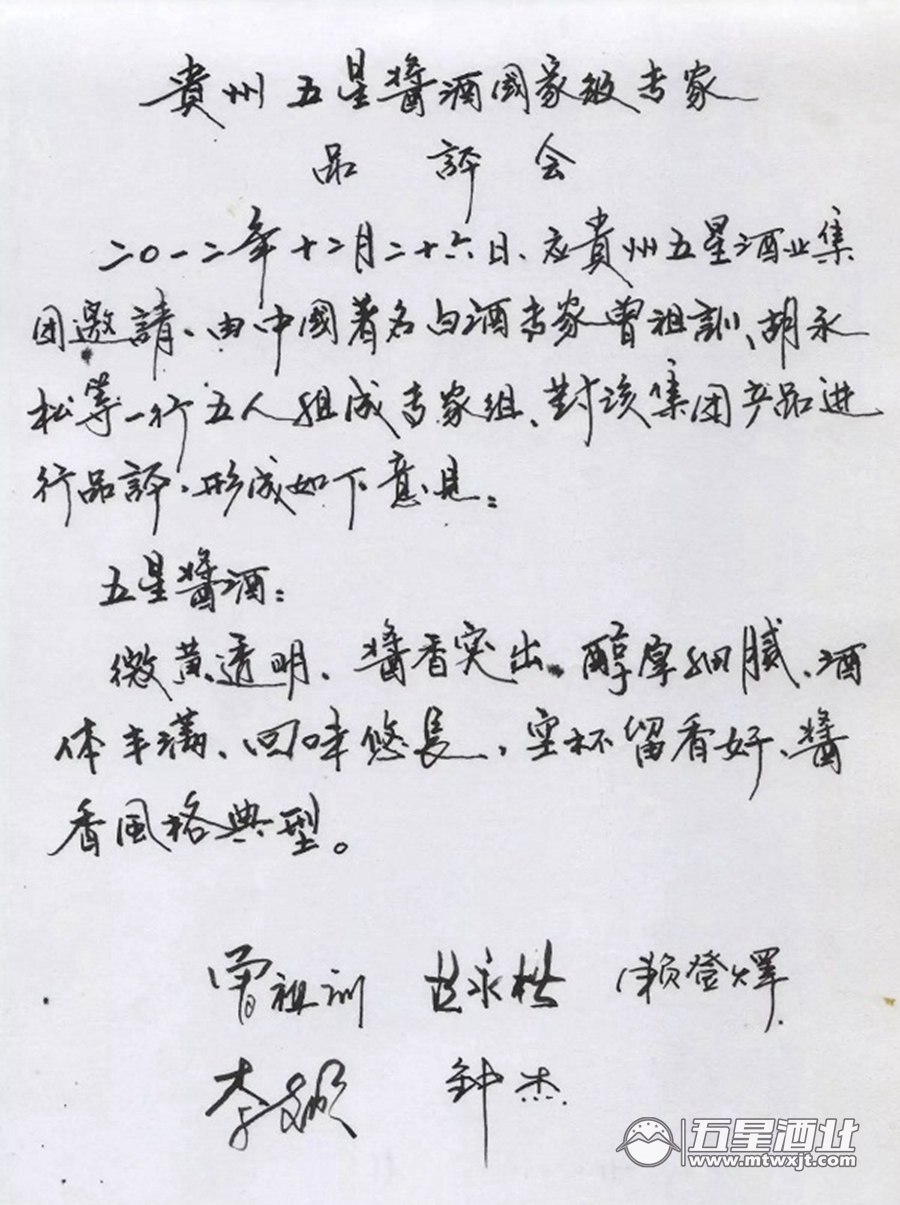 貴州五星醬酒國家级专家
品評会
二〇一二年十二月二十六日、应貴州五星酒业集
团邀請、由中國著名白酒专家曾祖訓、胡永
松等一行五人组成专家组、對该集团产品进
行品評、形成如下意見：
五星醬酒：
微黄透明、醬香突出、醇厚细腻、酒
体丰满、回味悠長、空杯留香好、醬
香風格典型。
曾祖训 胡永松 赖登燡
李 钟杰
五星酒业
www.mtwxjt.com